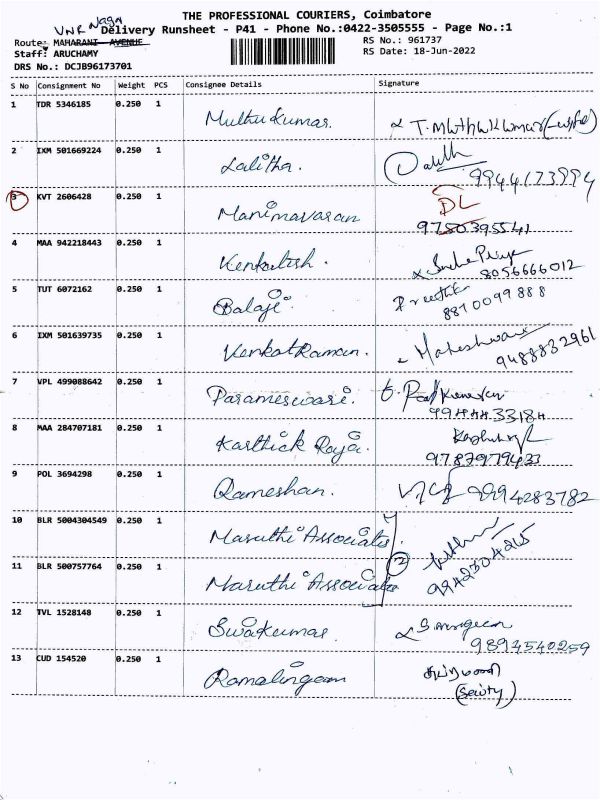 THE PROFESSIONAL COURIERS, Coimbatore
VNR Naga
Delivery Runsheet - P41 - Phone No.:0422-3505555 - Page No.:1
Route: MAHARANI AVENUE RS No.: 961737
Staff: ARUCHAMY RS Date: 18-Jun-2022
DRS No.: DCJB96173701
S No Consignment No Weight PCS Consignee Details Signature
1 TDR 5346185 0.250 1 Muthu kumar.
2 IXM 501669224 0.250 1 Lalitha. 9944173994
3 KVT 2606428 0.250 1 Manimavaran DL
9750395541
4 MAA 942218443 0.250 1 Venkatish. 8056666012
5 TUT 6072162 0.250 1 Balaji. Preethi
8870099888
6 IXM 501639735 0.250 1 VenkatRaman. Maheshwari
9488832961
7 VPL 499088642 0.250 1 Parameswari.
8 MAA 284707181 0.250 1 Karthick Raja.
9787979433
9 POL 3694298 0.250 1 Rameshan. 9994283782
10 BLR 5004304549 0.250 1 Maruthi Associates.
2
11 BLR 500757764 0.250 1 Maruthi Associate 9942304215
12 TVL 1528148 0.250 1 Sivakumar.
9894540259
13 CUD 154520 0.250 1 Ramalingam